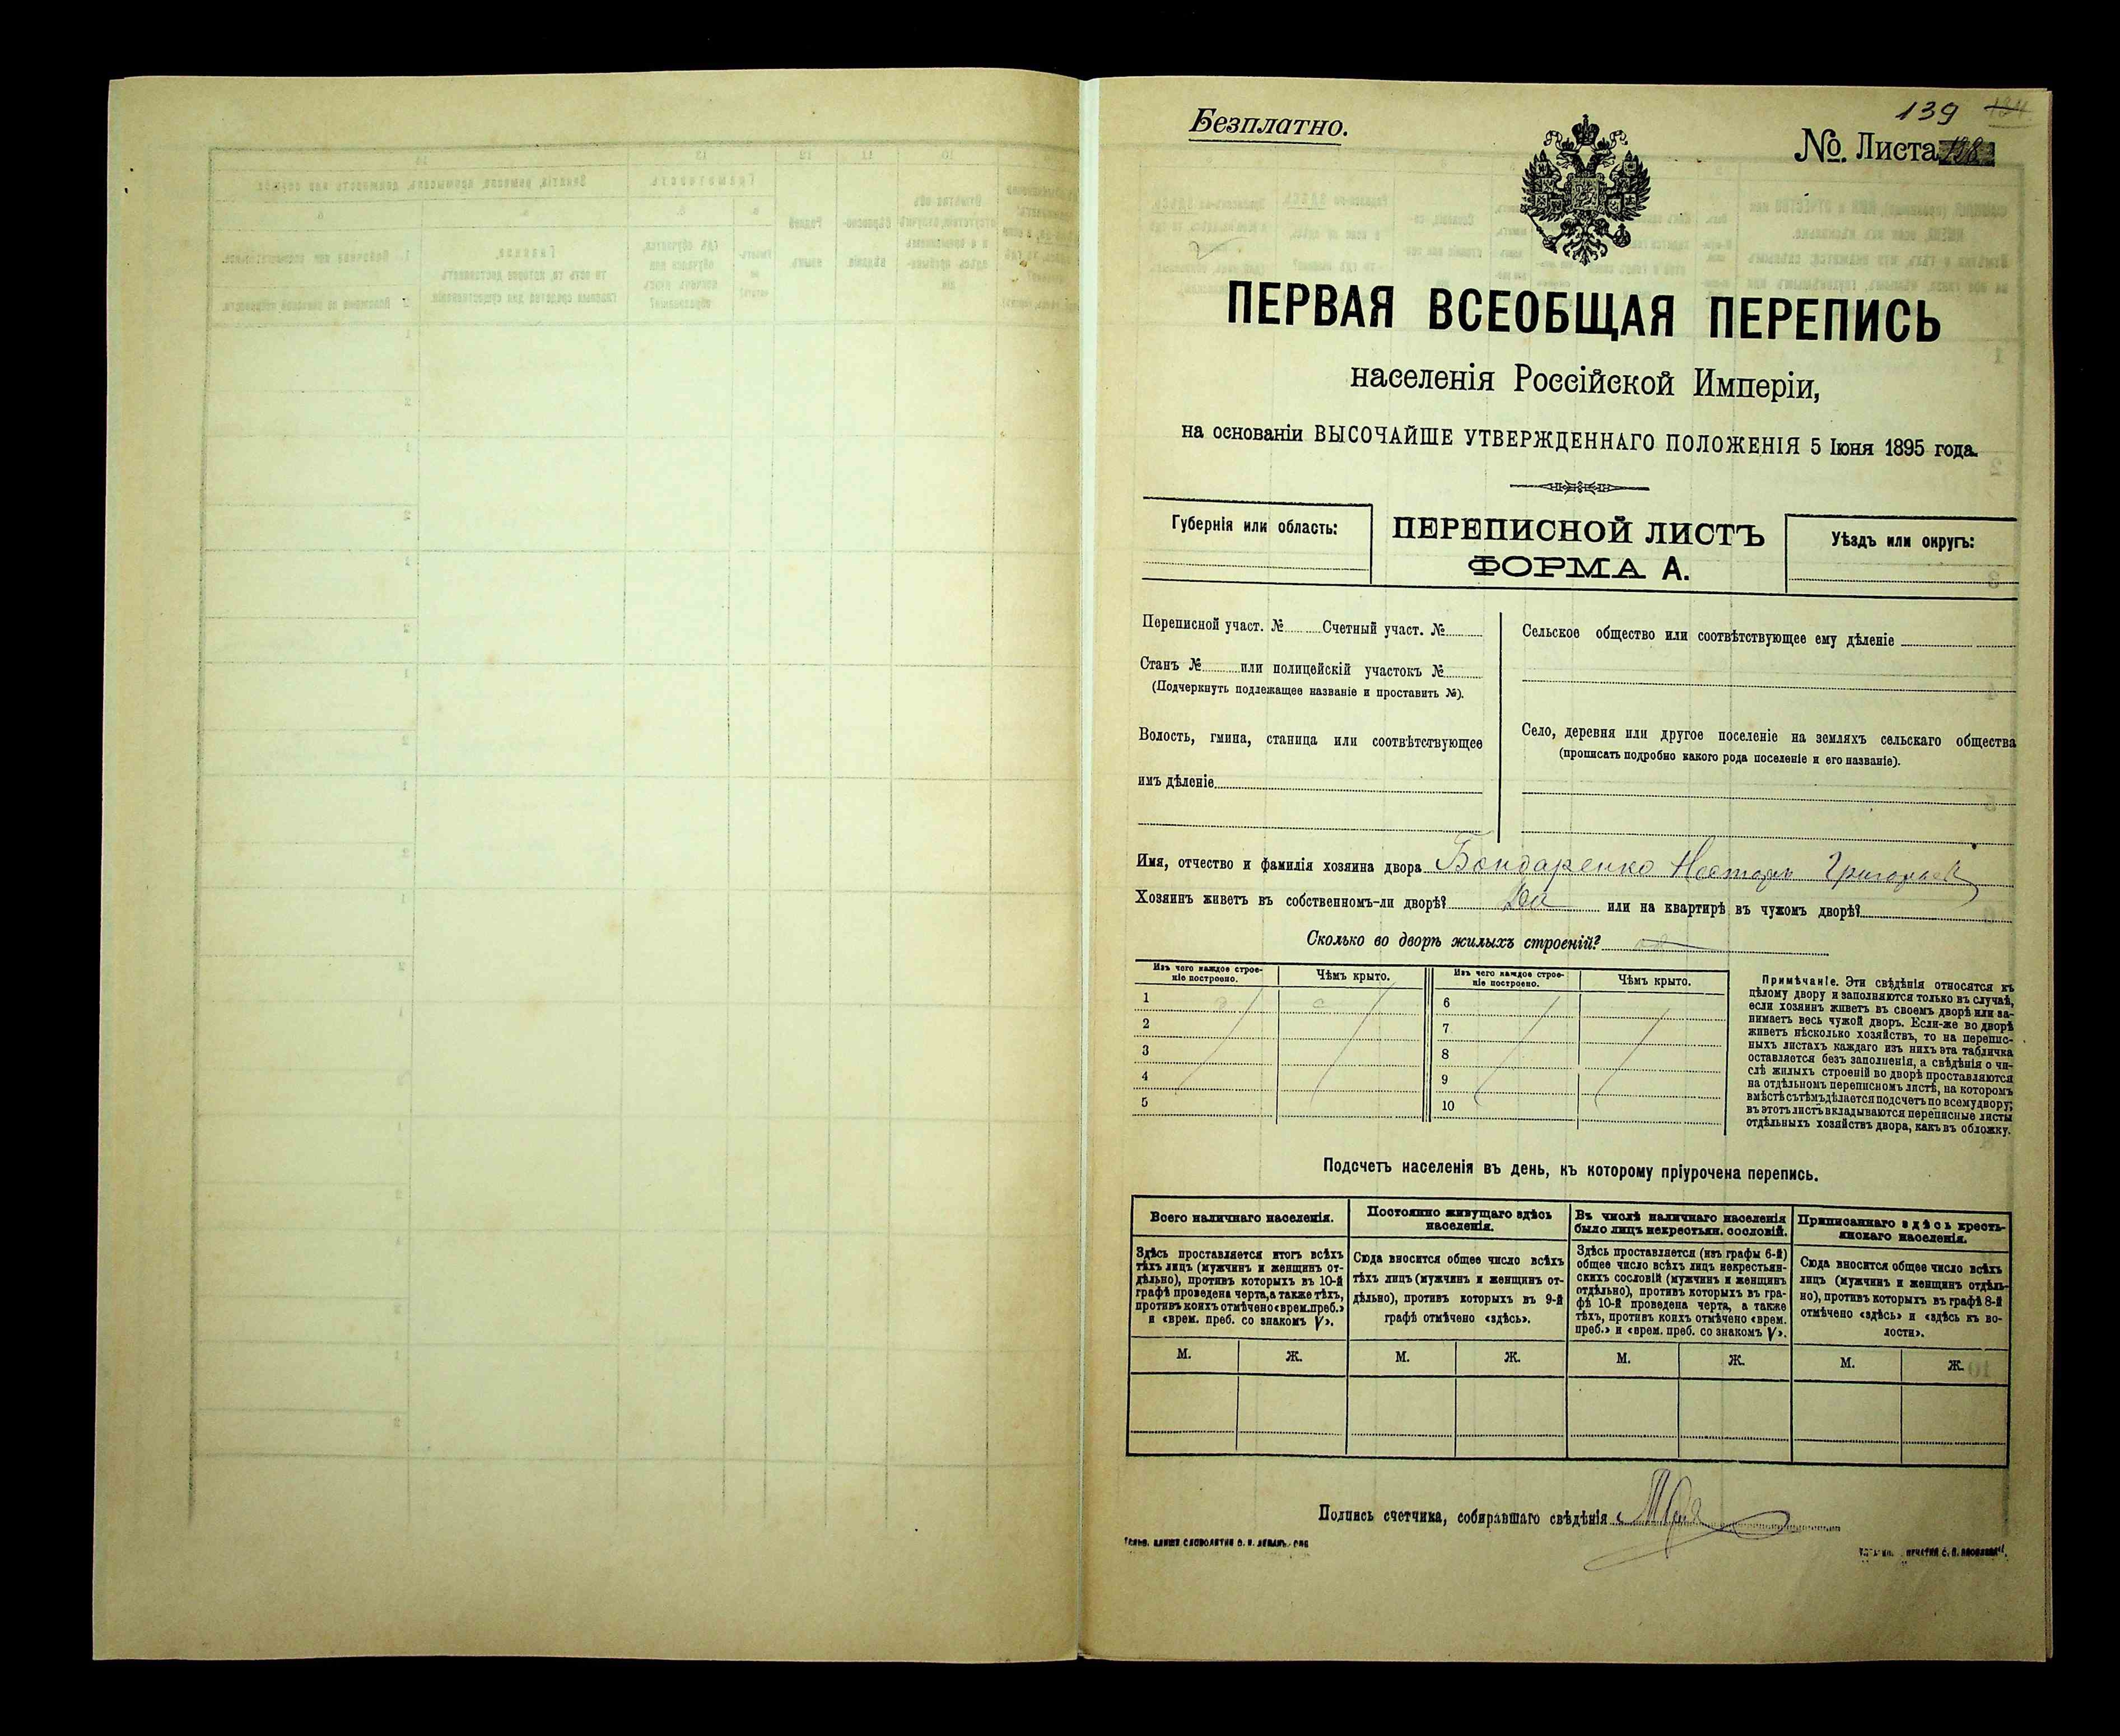 139
Безплатно.
№. Листа
ПЕРВАЯ ВСЕОБЩАЯ ПЕРЕПИСЬ
населенія Россійской Имперіи,
на основаніи ВЫСОЧАЙШЕ УТВЕРЖДЕННАГО ПОЛОЖЕНІЯ 5 Іюня 1895 года.
Губернія или область:
ПЕРЕПИСНОЙ ЛИСТЪ
ФОРМА А.
Уѣздъ или округъ:
Переписной участ. № Счетный участ. №
Станъ № или полицейскій участокъ №
(Подчеркнуть подлежащее названіе и проставить №).
Волость, гмина, станица или соотвѣтствующее
имъ дѣленіе
Сельское общество или соотвѣтствующее ему дѣленіе
Село, деревня или другое поселеніе на земляхъ сельскаго общества
(прописать подробно какого рода поселеніе и его названіе).
Имя, отчество и фамилія хозяина двора Бондаренко Несторъ
Хозяинъ живетъ въ собственномъ-ли дворѣ? или на квартирѣ въ чужомъ дворѣ?
Сколько во дворѣ жилыхъ строеній?
Изъ чего каждое строе-
ніе построено.
Чѣмъ крыто.
Изъ чего каждое строе-
ніе построено.
Чѣмъ крыто.
1
2
3
4
5
6
7
8
9
10
Примѣчаніе. Эти свѣдѣнія относятся къ
цѣлому двору и заполняются только въ случаѣ,
если хозяинъ живетъ въ своемъ дворѣ или за-
нимаетъ весь чужой дворъ. Если-же во дворѣ
живетъ нѣсколько хозяйствъ, то на перепис-
ныхъ листахъ каждаго изъ нихъ эта табличка
оставляется безъ заполненія, а свѣдѣнія о чи-
слѣ жилыхъ строеній во дворѣ проставляются
на отдѣльномъ переписномъ листѣ, на которомъ
вмѣстѣ съ тѣмъ дѣлается подсчетъ по всему двору;
въ этотъ листъ вкладываются переписные листы
отдѣльныхъ хозяйствъ двора, какъ въ обложку.
Подсчетъ населенія въ день, къ которому пріурочена перепись.
Всего наличнаго населенія.
Здѣсь проставляется итогъ всѣхъ
тѣхъ лицъ (мужчинъ и женщинъ от-
дѣльно), противъ которыхъ въ 10-й
графѣ проведена черта, а также тѣхъ,
противъ коихъ отмѣчено «врем. преб.»
и «врем. преб. со знакомъ V».
Постоянно живущаго здѣсь
населенія.
Сюда вносится общее число всѣхъ
тѣхъ лицъ (мужчинъ и женщинъ от-
дѣльно), противъ которыхъ въ 9-й
графѣ отмѣчено «здѣсь».
Въ числѣ наличнаго населенія
было лицъ некрестьян. сословій.
Здѣсь проставляется (изъ графы 6-й)
общее число всѣхъ лицъ некрестьян-
скихъ сословій (мужчинъ и женщинъ
отдѣльно), противъ которыхъ въ гра-
фѣ 10-й проведена черта, а также
тѣхъ, противъ коихъ отмѣчено «врем.
преб.» и «врем. преб. со знакомъ V».
Приписаннаго здѣсь кресть-
янскаго населенія.
Сюда вносится общее число всѣхъ
лицъ (мужчинъ и женщинъ отдѣль-
но), противъ которыхъ въ графѣ 8-й
отмѣчено «здѣсь» и «здѣсь къ во-
лости».
М. Ж. М. Ж. М. Ж. М. Ж.
Подпись счетчика, собиравшаго свѣдѣнія